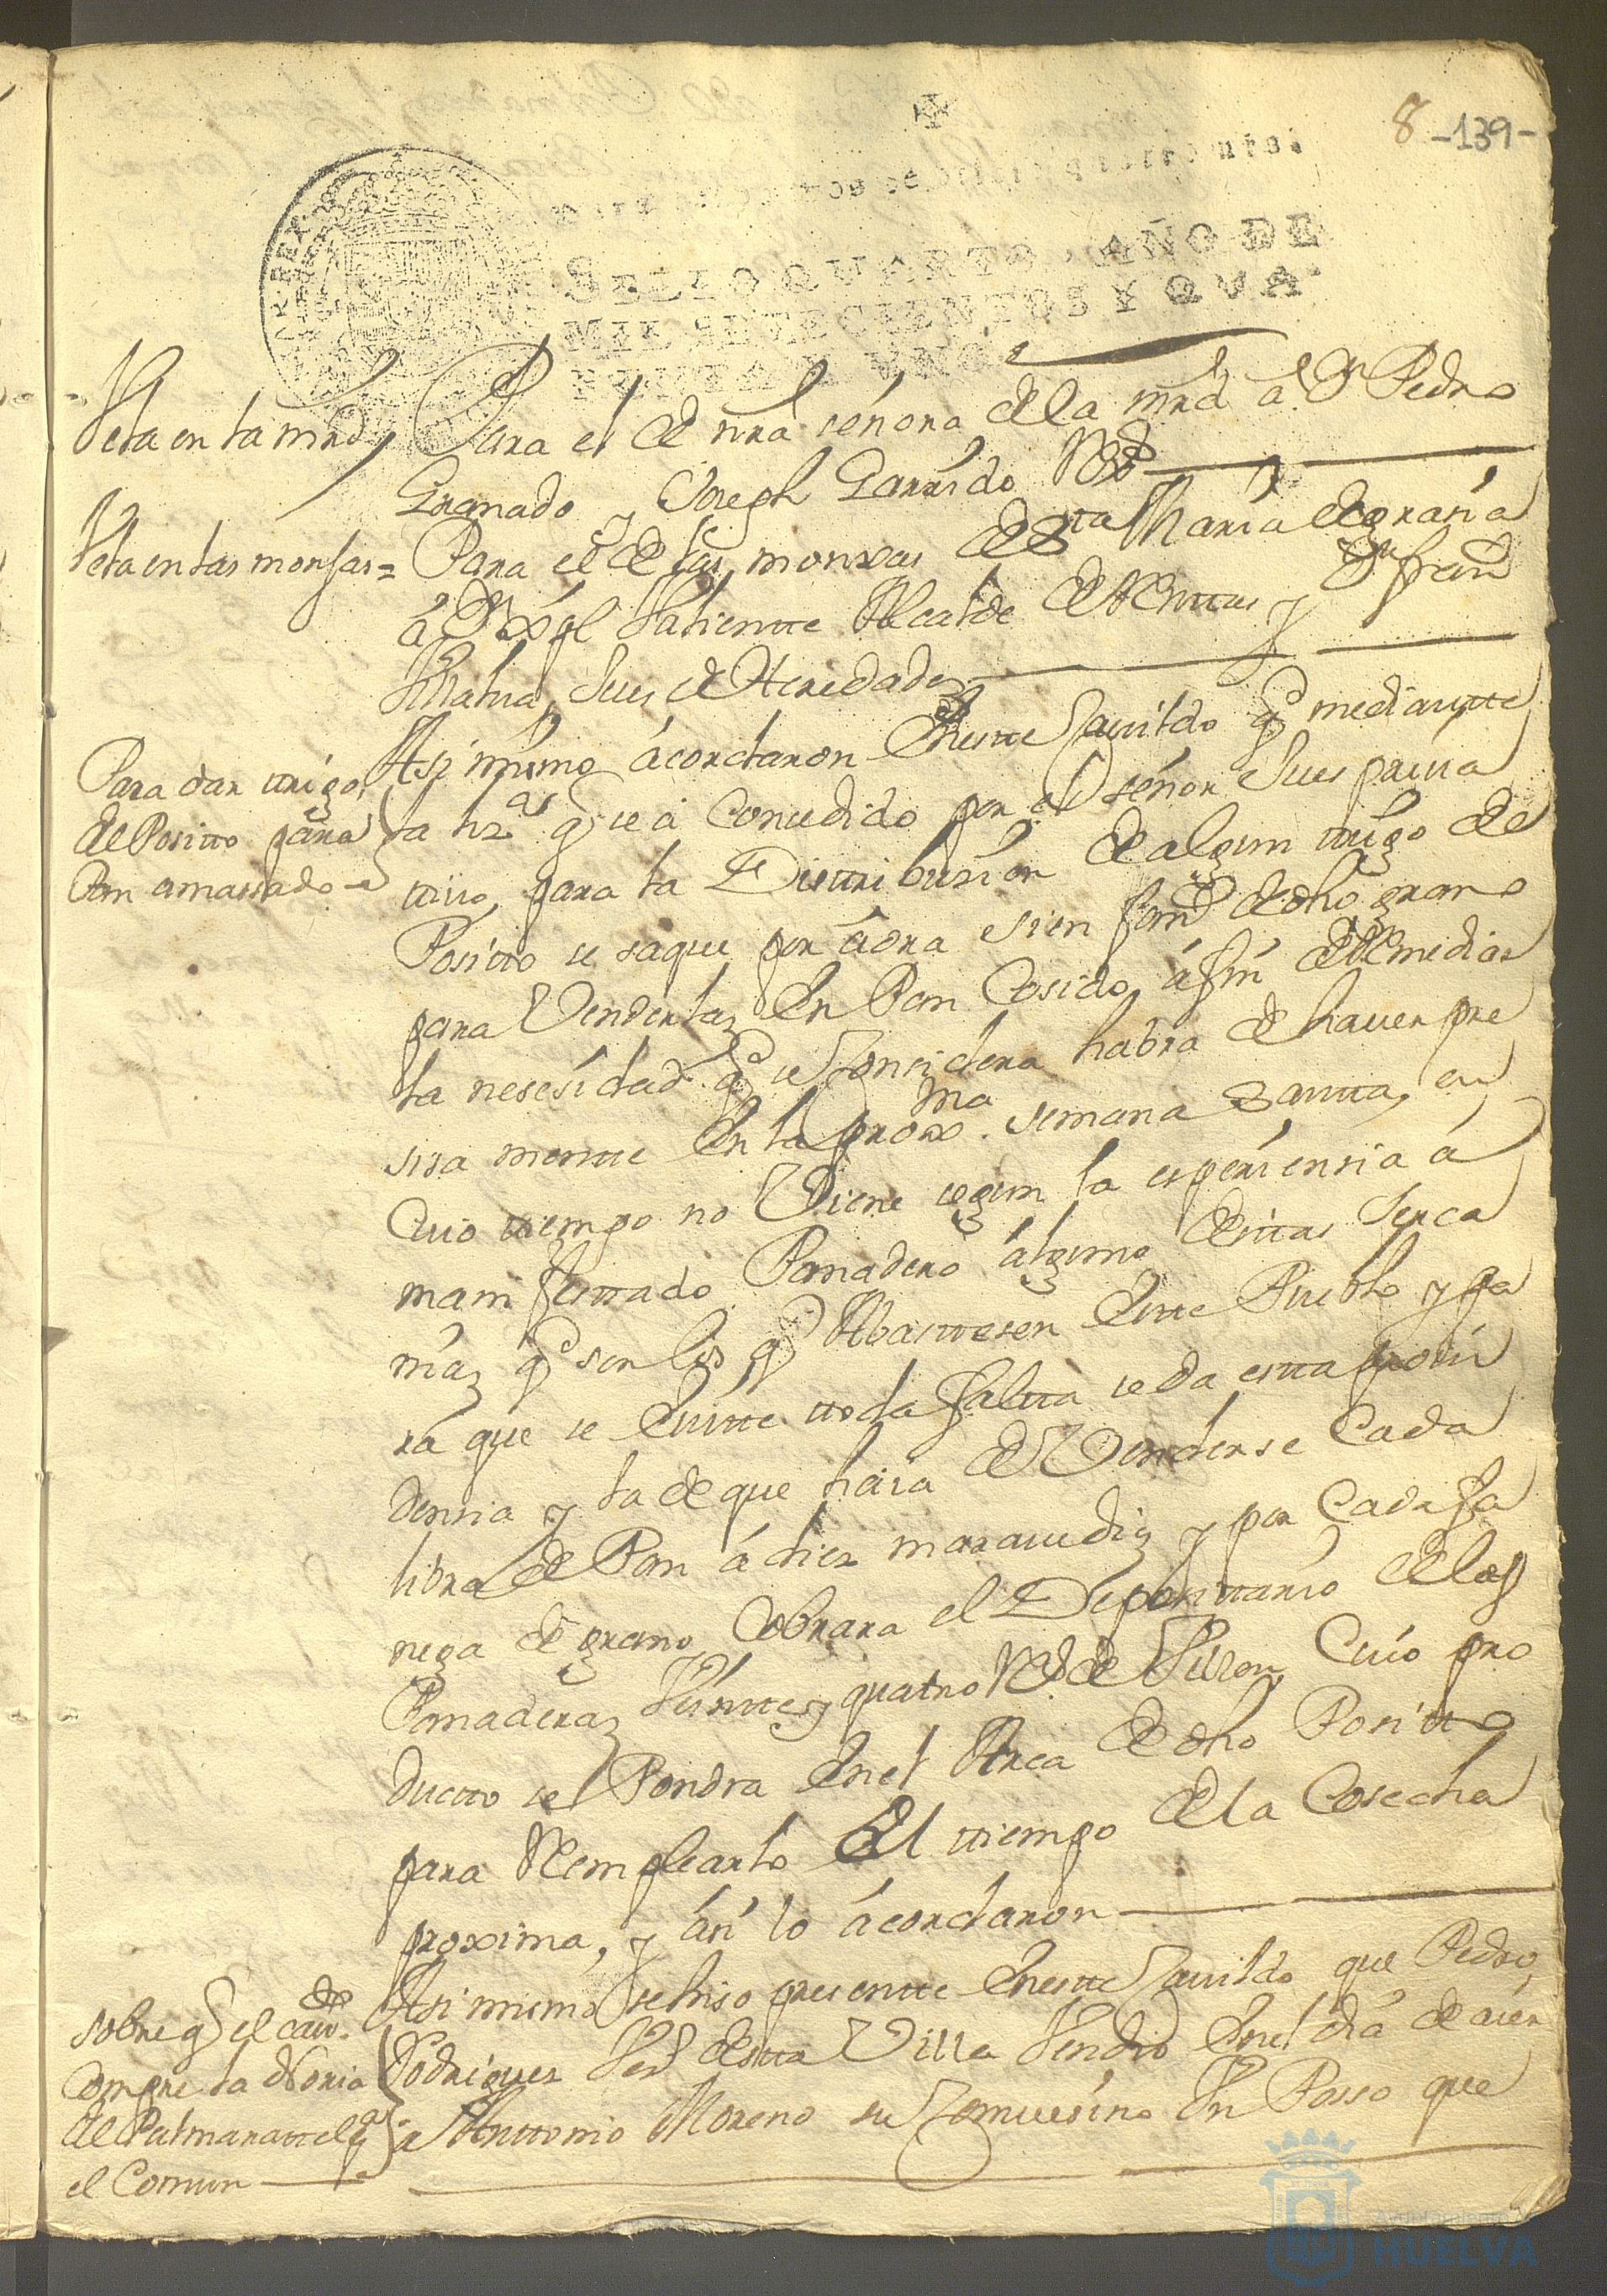 8 -139-
SELLO QVARTO, AÑO DE
MIL SETECIENTOS Y QVA
RENTA Y VNO.
Vta en la mrd,
Para el de nra señora de la mrd a Dn Pedro
Granado y Joseph Garrido Rdor
Vta en las monjas =
Para el de las monxas de Sta Maria de grasia
á Dn Xptl Valiente Alcalde de Rentas y Dn fran
Juez de Heredades
Para dar trigo
del Positto para
Pan amassado
Asi mismo ácordaron en este Cavildo q mediante
la liza q se á Consedido por el señor Juez priva
tivo, para la Distribusion de algun trigo de
Positto se saque por áora sien fans de dho grano
para Venderlas en Pan Cosido, á fin de Remediar
la nesesidad q se Considera habra de haver pre
sisa mente en la proxma semana Santta, en
Cuio tiempo no Viene segun la esperiensia á
manifesttado Panadero álguno destas serca
nías q son los q Abastesen este Pueblo y pa
ra que se evitte toda faltta se da estta provi
densia y la de que haia de Venderse Cada
libra de Pan á diez maravedis y por Cada fa
nega de grano Cobrara el Deposittario de las
Panaderas Veintte y quatro Rs de Vellon, Cuio pro
ductto se Pondra en el Arca de dho Positto
para Remplearlo El tiempo de la Cosecha
proxima, y ási lo ácordaron
sobre q el cavdo
Compre la Noria
del Palmar
el Comun
Asi mismo se hiso presentte en este Cavildo que Pedro
Rodriguez Vesº destta Villa Vendio en el dia de aier
a Anttonio Moreno su Comvesino Un Posso que
Ayuntamiento
HUELVA